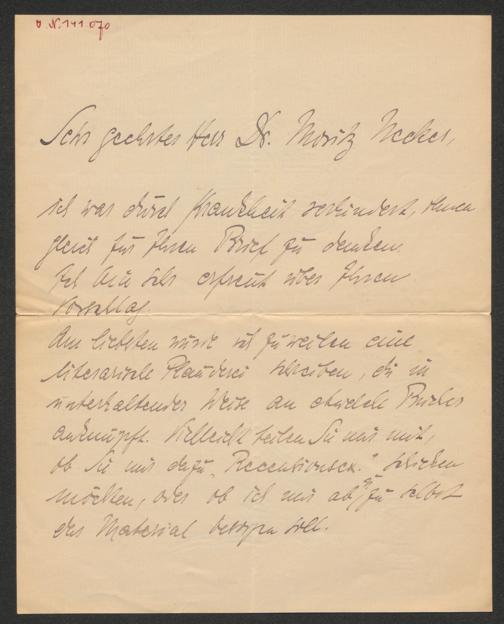 N. 141.070
Sehr geehrter Herr Dr. Moritz Necker,
ich war durch Krankheit verhindert, Ihnen
gleich für Ihren Brief zu danken.
Ich bin sehr erfreut über Ihren
Vorschlag.
Am liebsten würde ich zuweilen eine
literarische Plauderei schreiben, die in
unterhaltender Weise an einzelne Bücher
anknüpft. Vielleicht teilen Sie mir mit,
ob Sie mir dazu „Recensionsex." schicken
möchten, oder ob ich mir ab u. zu selbst
das Material besorgen soll.